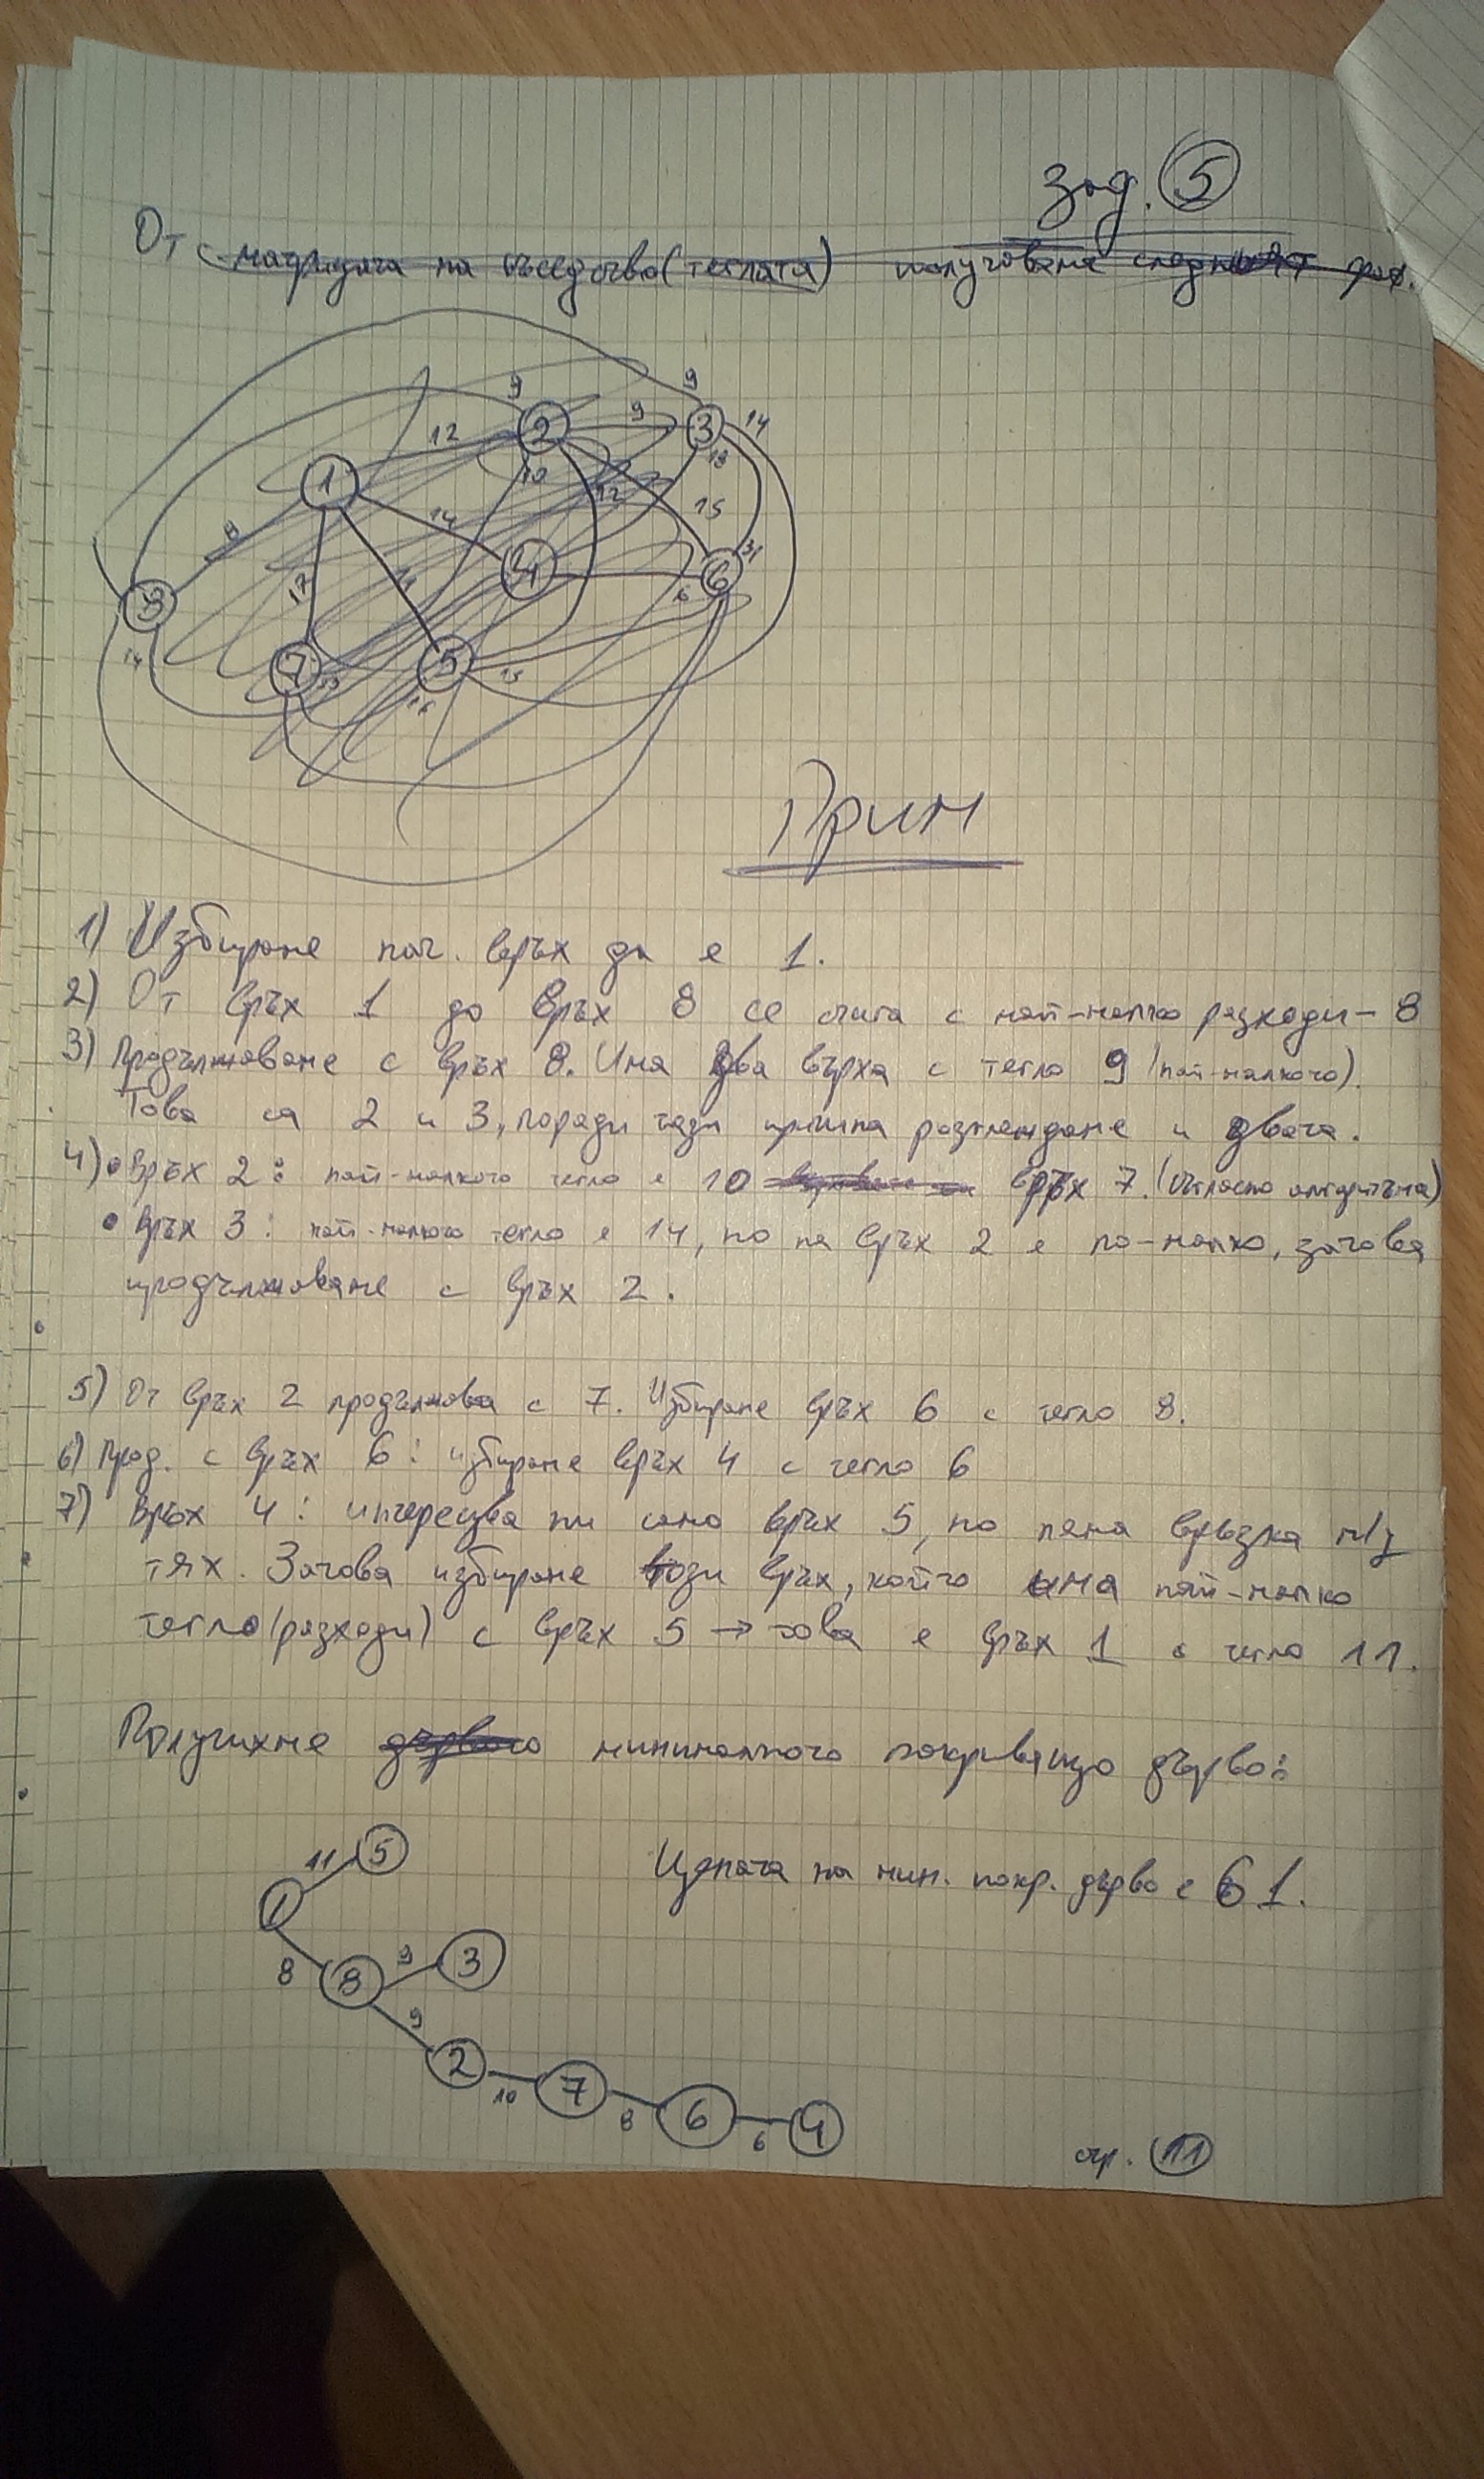 Зад. 5
От матрицата на съседство (теглата) получаваме следният граф.
9 9
12 2 9 3 14
1 10 12 13
8 14 15
17 11 4 31
8 6 6
14 7 5 15
16
Прим
1) Избираме нач. връх да е 1.
2) От връх 1 до връх 8 се стига с най-малко разходи – 8
3) Продължаваме с връх 8. Има два върха с тегло 9 (най-малкото).
Това са 2 и 3, поради тази причина разглеждаме и двата.
4) • Връх 2: най-малкото тегло е 10 връх 7. (съгласно алгоритъма)
• Връх 3: най-малкото тегло е 14, но на връх 2 е по-малко, затова
продължаваме с връх 2.
5) От връх 2 продължава с 7. Избираме връх 6 с тегло 8.
6) Прод. с връх 6: избираме връх 4 с тегло 6
7) Връх 4: интересува ни само връх 5, но няма връзка м/у
тях. Затова избираме този връх, който има най-малко
тегло (разходи) с връх 5 → това е връх 1 с тегло 11.
Получихме минималното покриващо дърво:
11 5
1 Цената на мин. покр. дърво е 61.
8 8 9 3
9
2 10 7 8 6 6 4
стр. 11